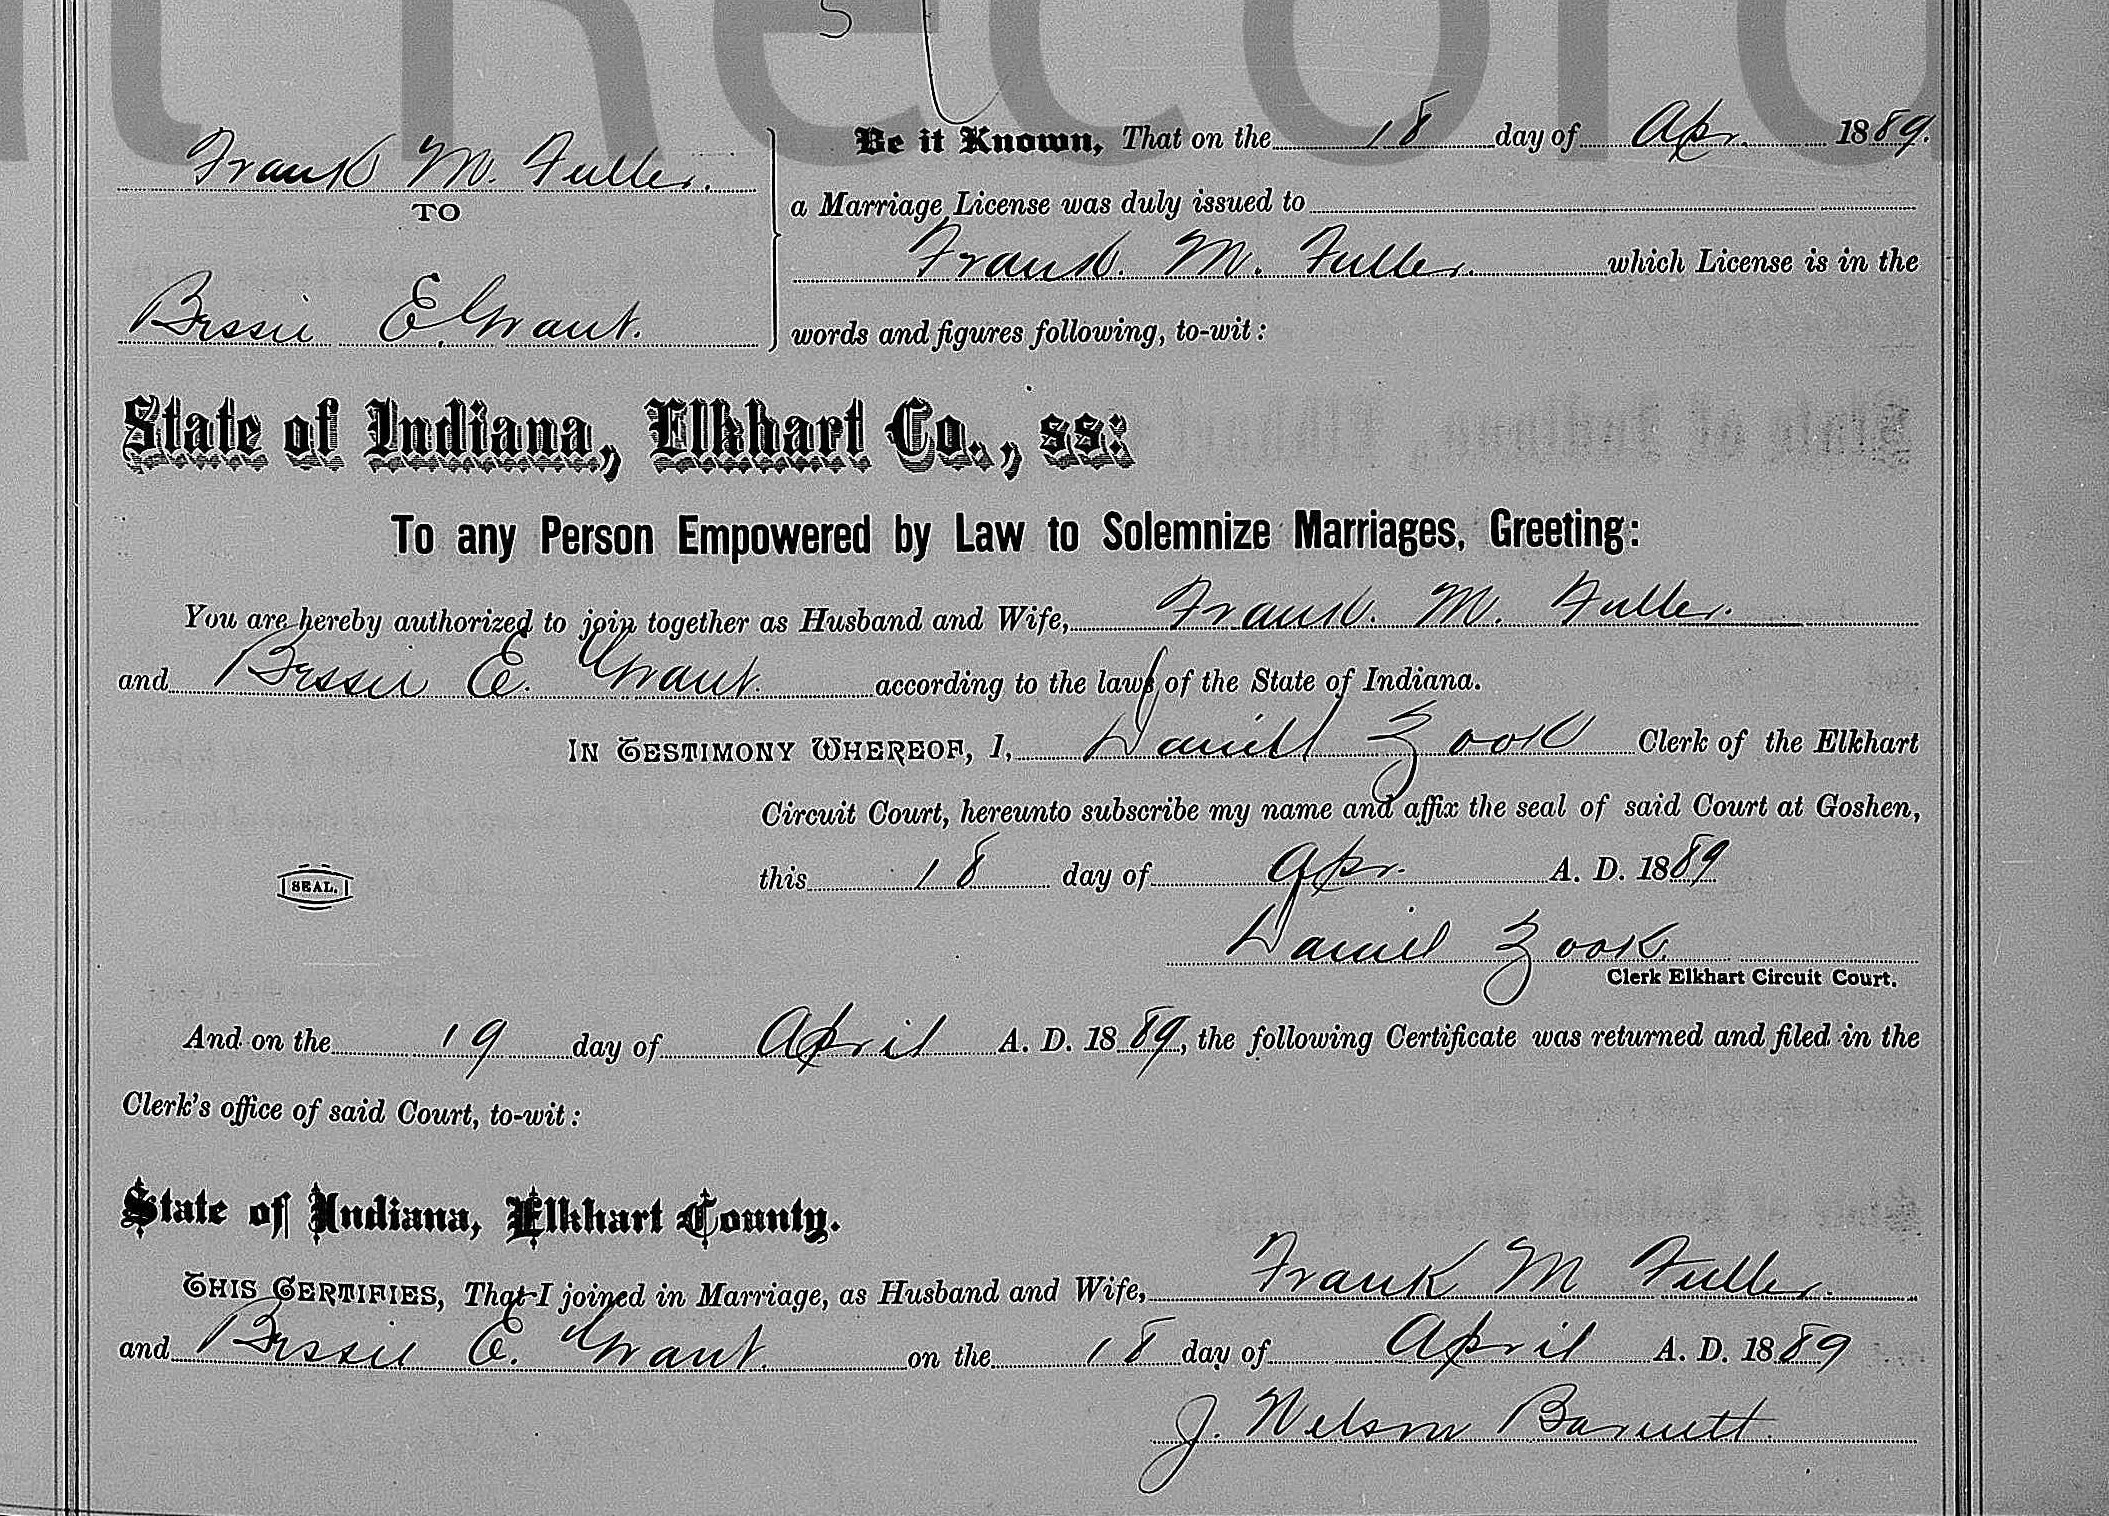 t Record
Frank M. Fuller.
TO
Bessie E. Grant.
Be it Known, That on the 18 day of Apr. 1889.
a Marriage License was duly issued to
Frank. M. Fuller. which License is in the
words and figures following, to-wit:
State of Indiana, Elkhart Co., ss:
To any Person Empowered by Law to Solemnize Marriages, Greeting:
You are hereby authorized to join together as Husband and Wife, Frank. M. Fuller.
and Bessie E. Grant. according to the laws of the State of Indiana.
IN TESTIMONY WHEREOF, I, Daniell Zook Clerk of the Elkhart
Circuit Court, hereunto subscribe my name and affix the seal of said Court at Goshen,
SEAL. this 18 day of Apr. A. D. 1889
Daniel Zook.
Clerk Elkhart Circuit Court.
And on the 19 day of April A. D. 1889, the following Certificate was returned and filed in the
Clerk's office of said Court, to-wit:
State of Indiana, Elkhart County.
THIS CERTIFIES, That I joined in Marriage, as Husband and Wife, Frank M Fuller.
and Bessie E. Grant. on the 18 day of April A. D. 1889
J. Wilson Barnett.